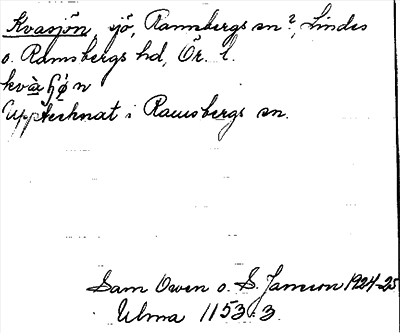 Kvasjön, sjö, Ramsbergs sn?, Lindes
o. Ramsbergs hd, Ör. l.
kvàɧǿn
Upptecknat i Ramsbergs sn.
Sam Owen o. S. Janson 1924-25
Ulma 1153:3.